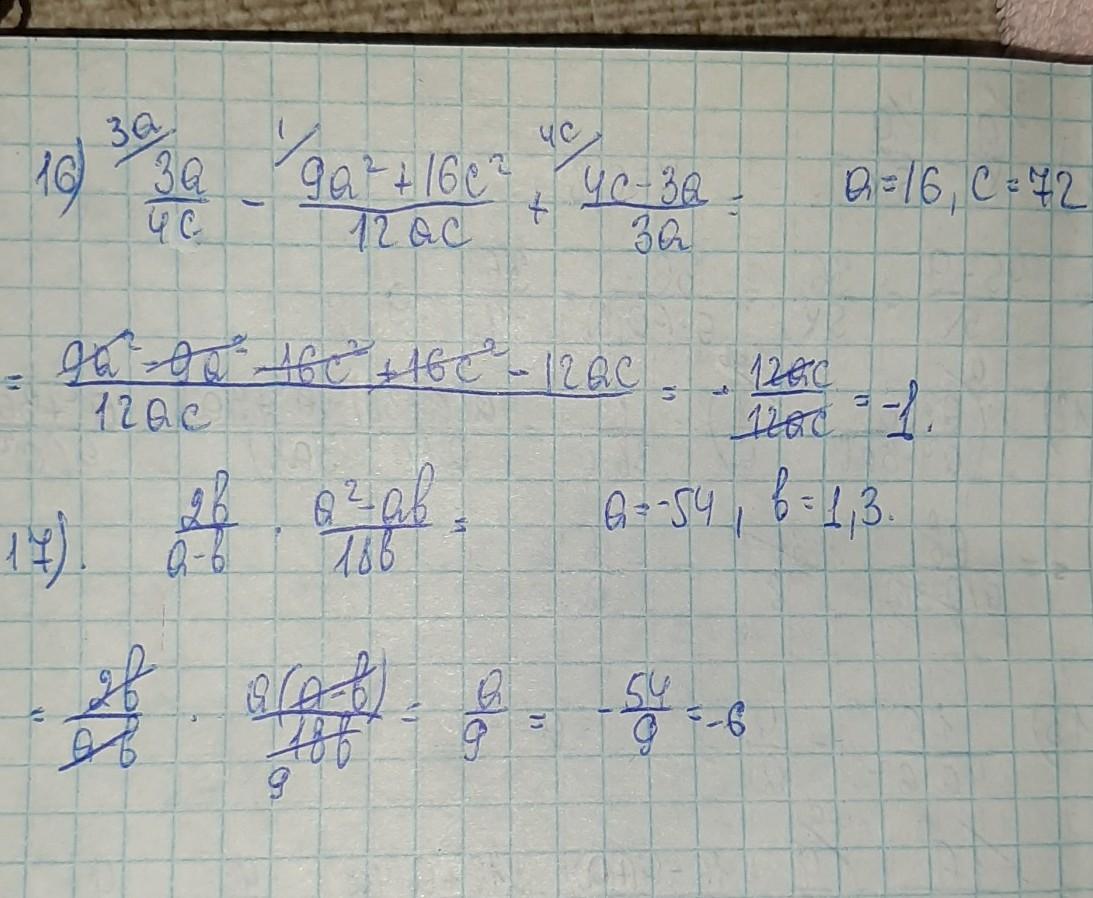 16) 3a/ 3a/4c - 1/ (9a² + 16c²)/12ac + 4c/ (4c - 3a)/3a = a = 16, c = 72
= (9a² - 9a² - 16c² + 16c² - 12ac)/12ac = - 12ac/12ac = -1.
17). 2b/(a-b) · (a² - ab)/18b = a = -54, b = 1,3.
= 2b/(a-b) · a(a-b)/18b 9 = a/9 = - 54/9 = -6